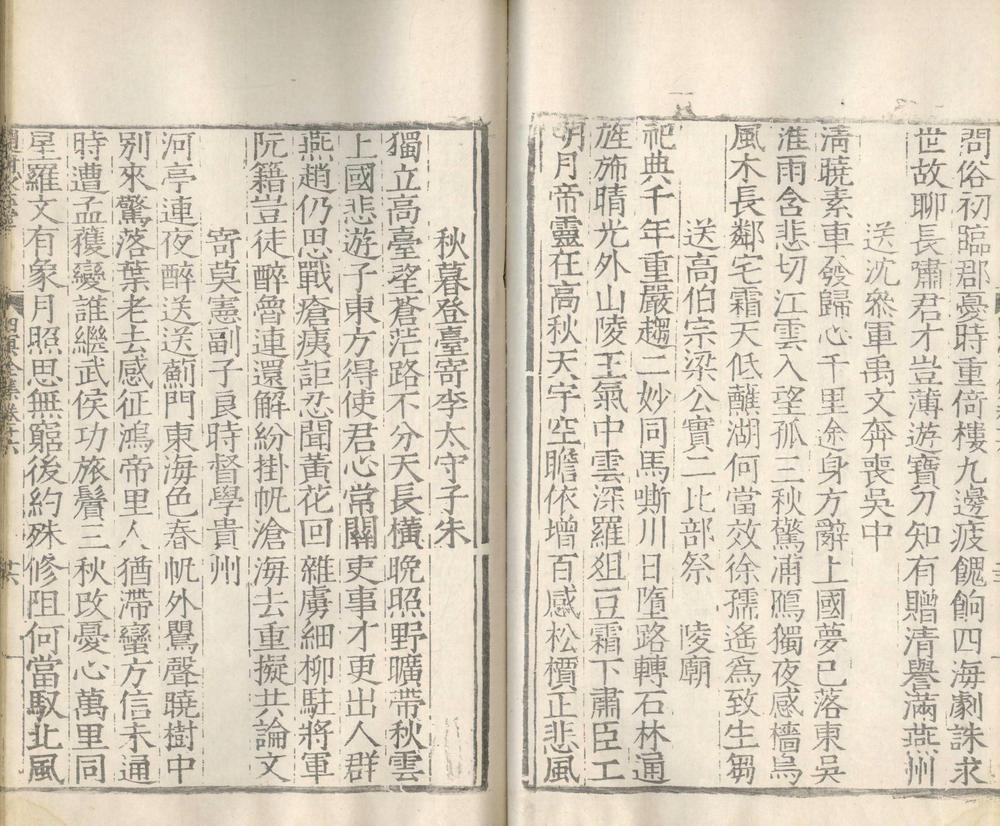 問俗初臨郡憂時重倚樓九邊疲餽餉四海劇誅求
世故聊長嘯君才豈薄遊寶刀知有贈清譽滿燕州
送沈叅軍禹文奔喪吳中
清曉素車發歸心千里途身方辭上國夢已落東吳
淮雨含悲切江雲入望孤三秋驚浦鴈獨夜感檣烏
風木長鄰宅霜天低蘸湖何當效徐孺遙爲致生芻
送高伯宗梁公實二比部祭　陵廟
祀典千年重嚴趨二妙同馬嘶川日墮路轉石林通
旌斾晴光外山陵王氣中雲深羅俎豆霜下肅臣工
明月帝靈在高秋天宇空瞻依增百感松檟正悲風
秋暮登臺寄李太守子朱
獨立高臺望蒼茫路不分天長橫晚照野曠帶秋雲
上國悲遊子東方得使君心常關吏事才更出人群
燕趙仍思戰瘡痍詎忍聞黃花回雜虜細柳駐將軍
阮籍豈徒醉魯連還解紛掛帆滄海去重擬共論文
寄莫憲副子良時督學貴州
河亭連夜醉送送薊門東海色春帆外鶯聲曉樹中
別來驚落葉老去感征鴻帝里人猶滯蠻方信未通
時遭孟獲變誰繼武侯功旅鬢三秋改憂心萬里同
星羅文有象月照思無窮後約殊修阻何當馭北風